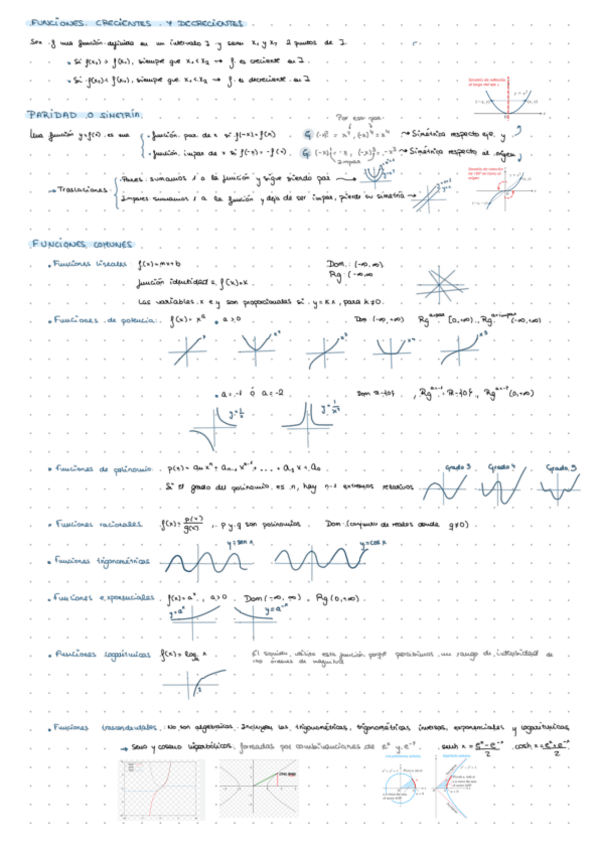 FUNCIONES CRECIENTES Y DECRECIENTES
Sea f una función definida en un intervalo I y sean x₁ y x₂ 2 puntos de I.
Si f(x₂) > f(x₁), siempre que x₁ < x₂ → f es creciente en I
Si f(x₂) < f(x₁), siempre que x₁ < x₂ → f es decreciente en I
PARIDAD O SIMETRÍA
Por eso par
Una función y=f(x) es una
función par de x si f(-x)=f(x) (-x)² = x², (-x)⁴ = x⁴ → Simétrica respecto eje y
función impar de x si f(-x) = -f(x) → Simétrica respecto al origen
Impar
Traslaciones
Pares: sumamos 1 a la función y sigue siendo par
Impares sumamos 1 a la función y deja de ser impar, pierde su simetría
FUNCIONES COMUNES
Funciones lineales f(x)=mx+b Dom: (-∞,∞)
función identidad = f(x)=x Rg: (-∞,∞
Las variables x e y son proporcionales si y=kx, para k≠0.
Funciones de potencia: f(x)= xᵃ a>0 Dom: (-∞,+∞) Rg a=par [0,+∞), Rg a=impar (-∞,+∞)
a=-1 ó a=-2 Dom R-{0}, Rg a=-1: R-{0}, Rg a=-2 (0,+∞)
y=1/x y=1/x²
Funciones de polinomio p(x)= aₙxⁿ+aₙ₋₁xⁿ⁻¹+...+a₁x+a₀ Grado 3 Grado 4 Grado 5
Si el grado del polinomio es n, hay n-1 extremos relativos
Funciones racionales f(x)= p(x)/q(x), p y q son polinomios Dom: (conjunto de reales donde q≠0)
Funciones trigonométricas y=sen x y=cos x
Funciones exponenciales f(x)=aˣ, a>0 Dom (-∞,∞), Rg (0,+∞)
y=aˣ y=a⁻ˣ
Funciones logarítmicas f(x)= logₐ x El sonido, utiliza esta función porque percibimos un rango de intensidad de
órdenes de magnitud
Funciones trascendentales: No son algebraicas. Incluyen las trigonométricas, trigonométricas inversas, exponenciales y logarítmicas
→ Seno y coseno hiperbólicos, formadas por combinaciones de eˣ y e⁻ˣ senh x = eˣ-e⁻ˣ/2 cosh x = eˣ+e⁻ˣ/2